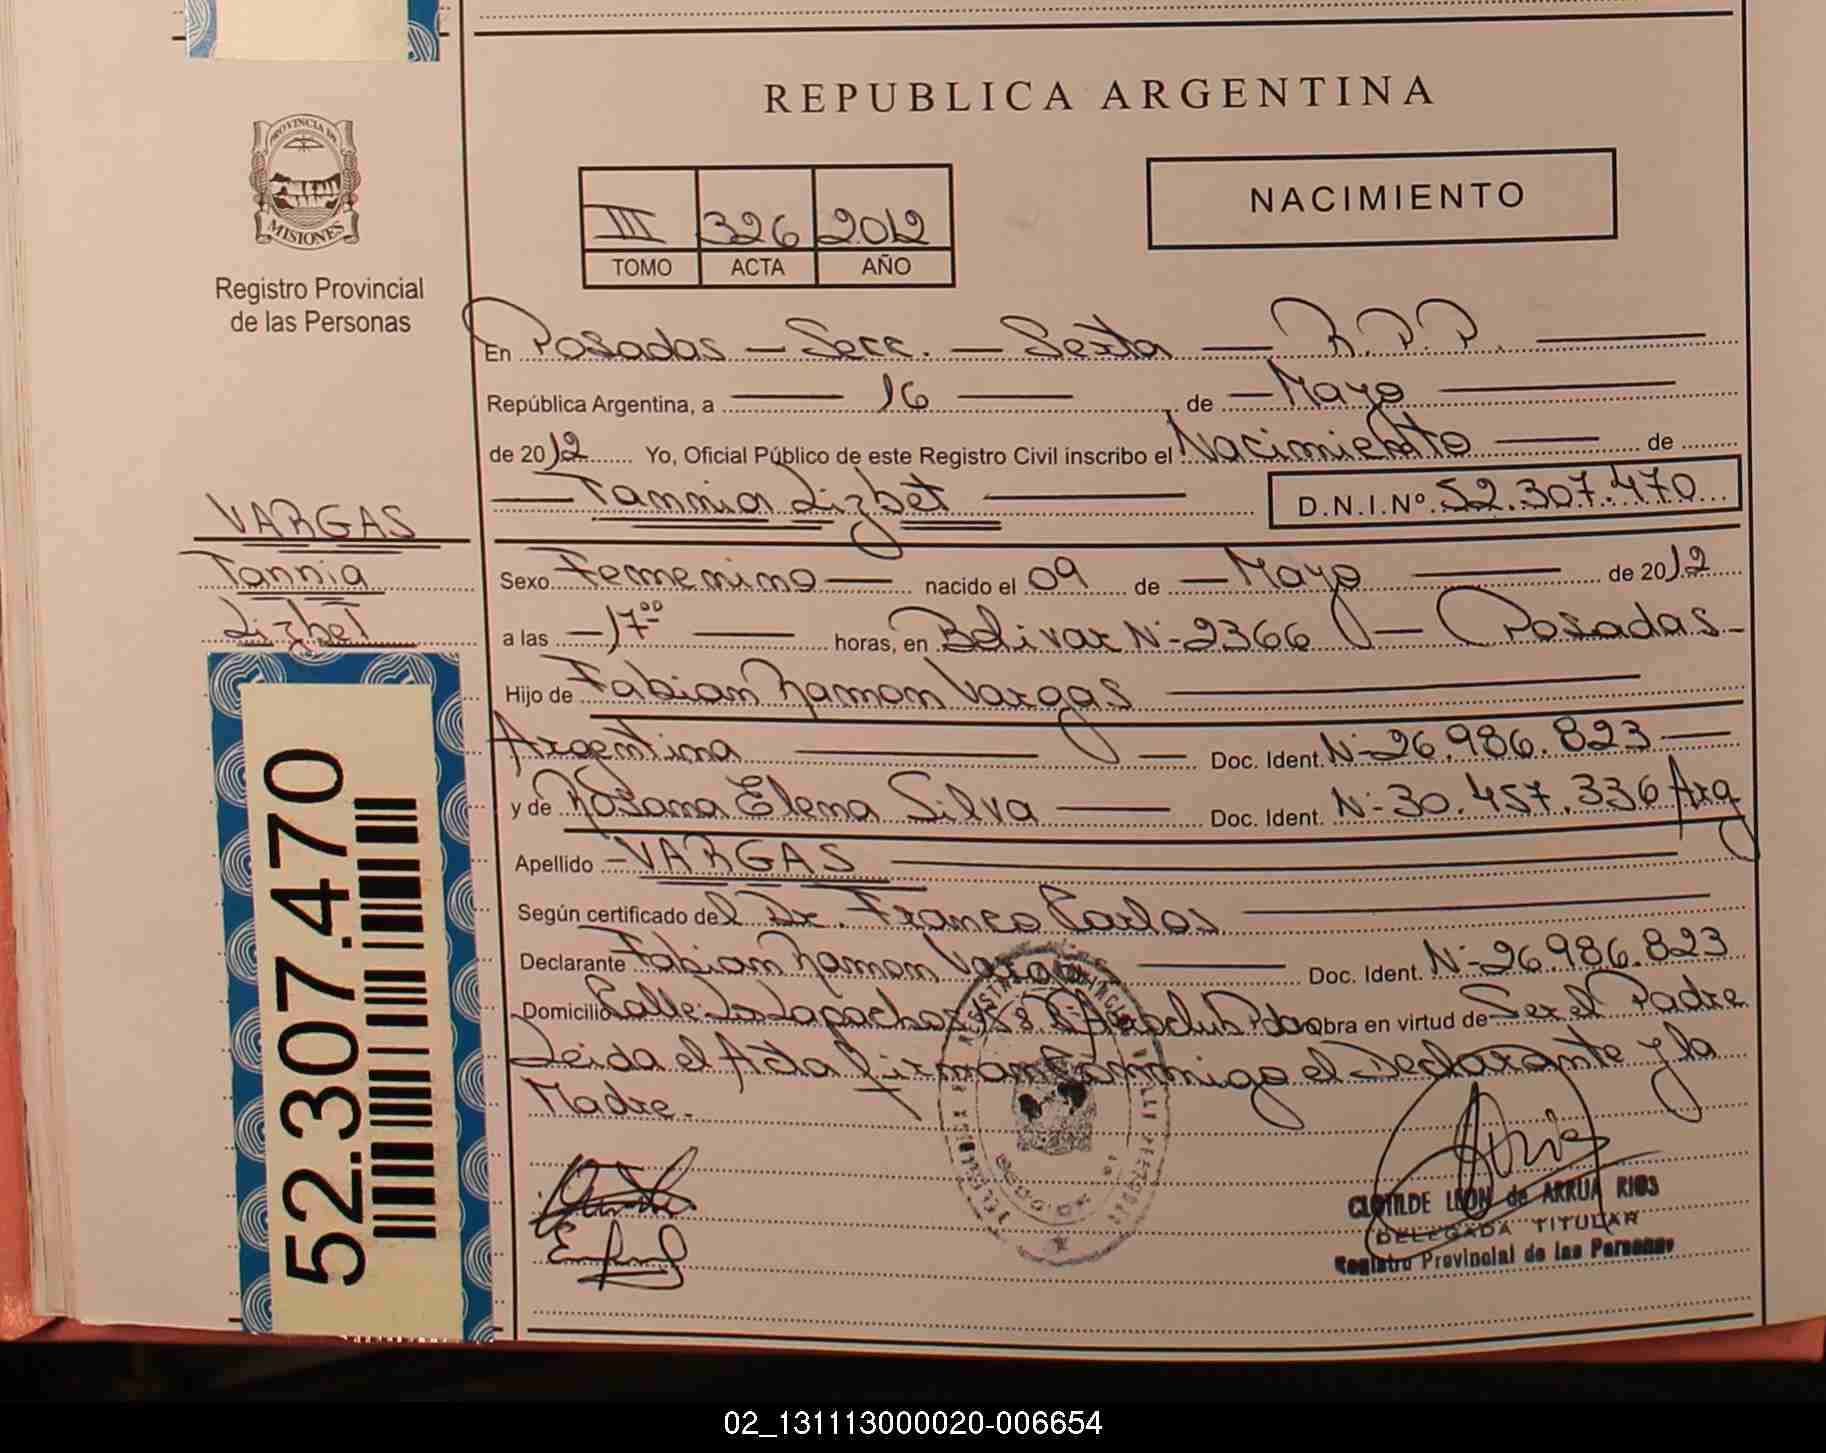 REPUBLICA ARGENTINA
PROVINCIA DE
MISIONES
Registro Provincial
de las Personas
III 326 2012
TOMO ACTA AÑO
NACIMIENTO
En Posadas - Secc. - Sexta - R.P.P.
República Argentina, a 16 de Mayo
de 2012 Yo, Oficial Público de este Registro Civil inscribo el Nacimiento de
Tannia Lizbet D.N.I.Nº 52.307.470
VARGAS
Tannia
Lizbet
Sexo Femenino nacido el 09 de Mayo de 2012
a las 17⁰⁰ horas, en Bolivar N-2366 - Posadas
Hijo de Fabian Ramon Vargas
Argentina Doc. Ident. N-26.986.823
y de Rosana Elena Silva Doc. Ident. N-30.457.336 Arg
Apellido VARGAS
Según certificado del Dr. Franco Carlos
Declarante Fabian Ramon Vargas Doc. Ident. N-26.986.823
Domicilio Calle Lapachos obra en virtud de Ser el Padre
Leida el Acta firman conmigo el Declarante y la
Madre.
52.307.470
CLOTILDE LEON de ARRUA RIOS
DELEGADA TITULAR
Registro Provincial de las Personas
02_131113000020-006654